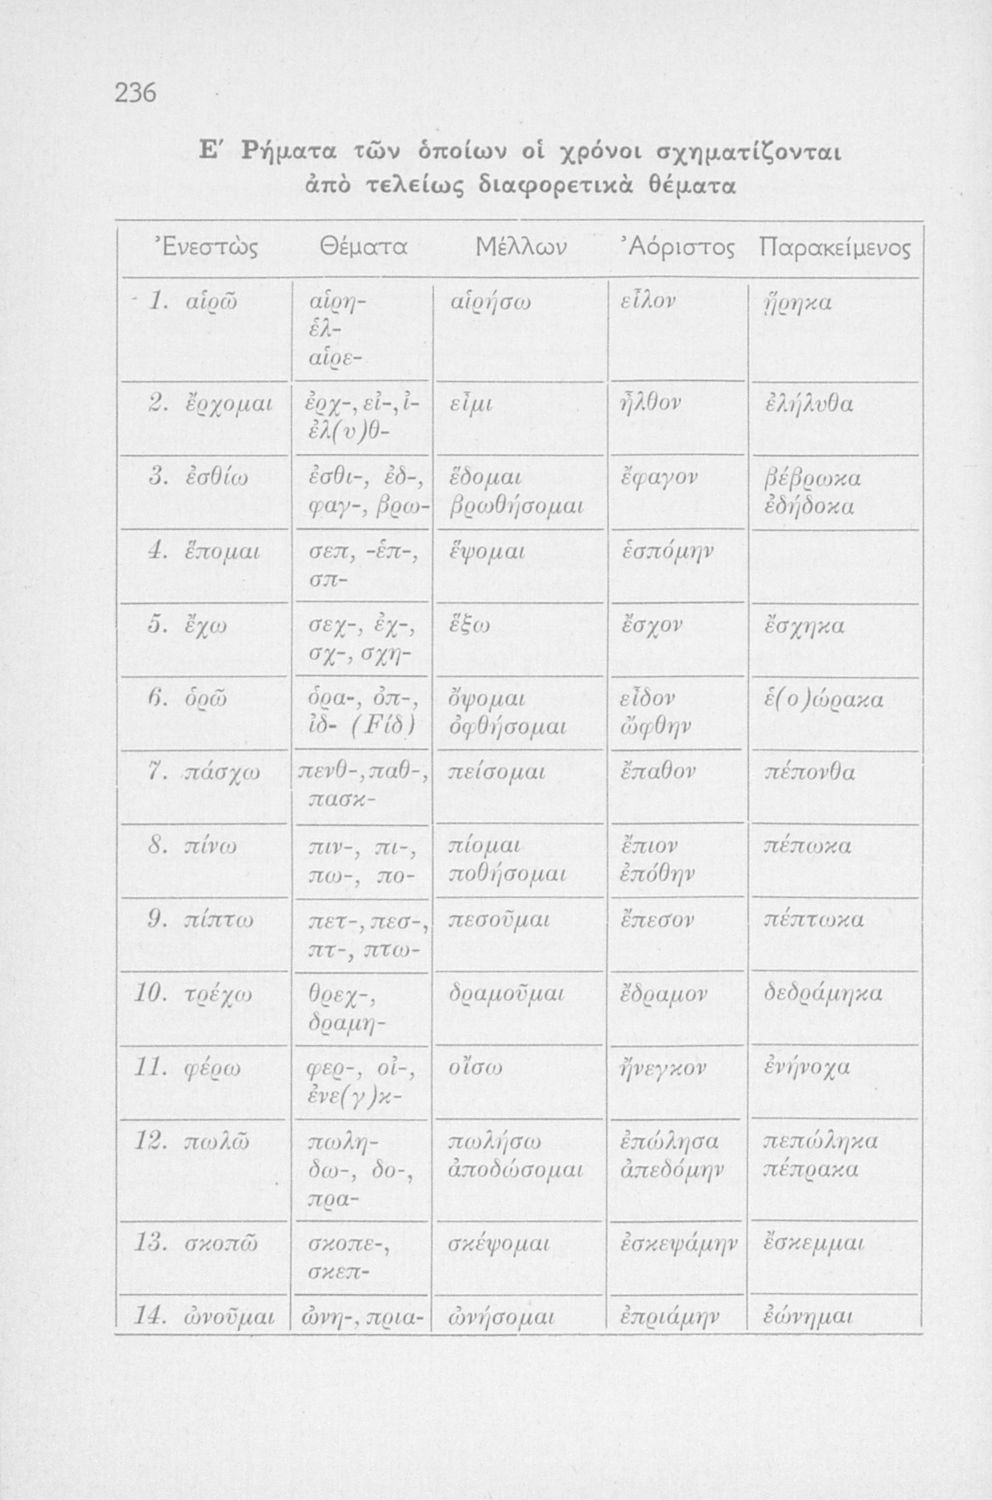 236
Ε΄ Ρήματα τῶν ὁποίων οἱ χρόνοι σχηματίζονται
ἀπὸ τελείως διαφορετικὰ θέματα
Ἐνεστὼς Θέματα Μέλλων Ἀόριστος Παρακείμενος
1. αἱρῶ αἱρη- αἱρήσω εἷλον ᾕρηκα
ἑλ-
αἱρε-
2. ἔρχομαι ἐρχ-, εἰ-, ἰ- εἶμι ἦλθον ἐλήλυθα
ἐλ(υ)θ-
3. ἐσθίω ἐσθι-, ἐδ-, ἔδομαι ἔφαγον βέβρωκα
φαγ-, βρω- βρωθήσομαι ἐδήδοκα
4. ἕπομαι σεπ, -ἑπ-, ἕψομαι ἑσπόμην
σπ-
5. ἔχω σεχ-, ἐχ-, ἕξω ἔσχον ἔσχηκα
σχ-, σχη-
6. ὁρῶ ὁρα-, ὀπ-, ὄψομαι εἶδον ἑ(ο)ώρακα
ἰδ- (Fίδ) ὀφθήσομαι ὤφθην
7. πάσχω πενθ-, παθ-, πείσομαι ἔπαθον πέπονθα
πασκ-
8. πίνω πιν-, πι-, πίομαι ἔπιον πέπωκα
πω-, πο- ποθήσομαι ἐπόθην
9. πίπτω πετ-, πεσ-, πεσοῦμαι ἔπεσον πέπτωκα
πτ-, πτω-
10. τρέχω θρεχ-, δραμοῦμαι ἔδραμον δεδράμηκα
δραμη-
11. φέρω φερ-, οἰ-, οἴσω ἤνεγκον ἐνήνοχα
ἐνε(γ)κ-
12. πωλῶ πωλη- πωλήσω ἐπώλησα πεπώληκα
δω-, δο-, ἀποδώσομαι ἀπεδόμην πέπρακα
πρα-
13. σκοπῶ σκοπε-, σκέψομαι ἐσκεψάμην ἔσκεμμαι
σκεπ-
14. ὠνοῦμαι ὠνη-, πρια- ὠνήσομαι ἐπριάμην ἐώνημαι